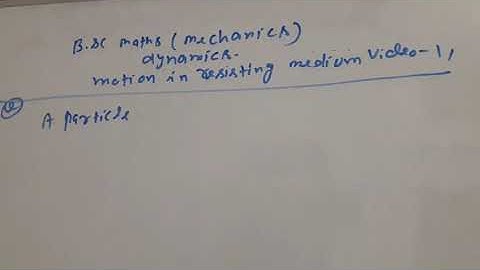 B.SC maths (mechanics)
dynamics.
motion in resisting medium Video-1,
Q
A particle